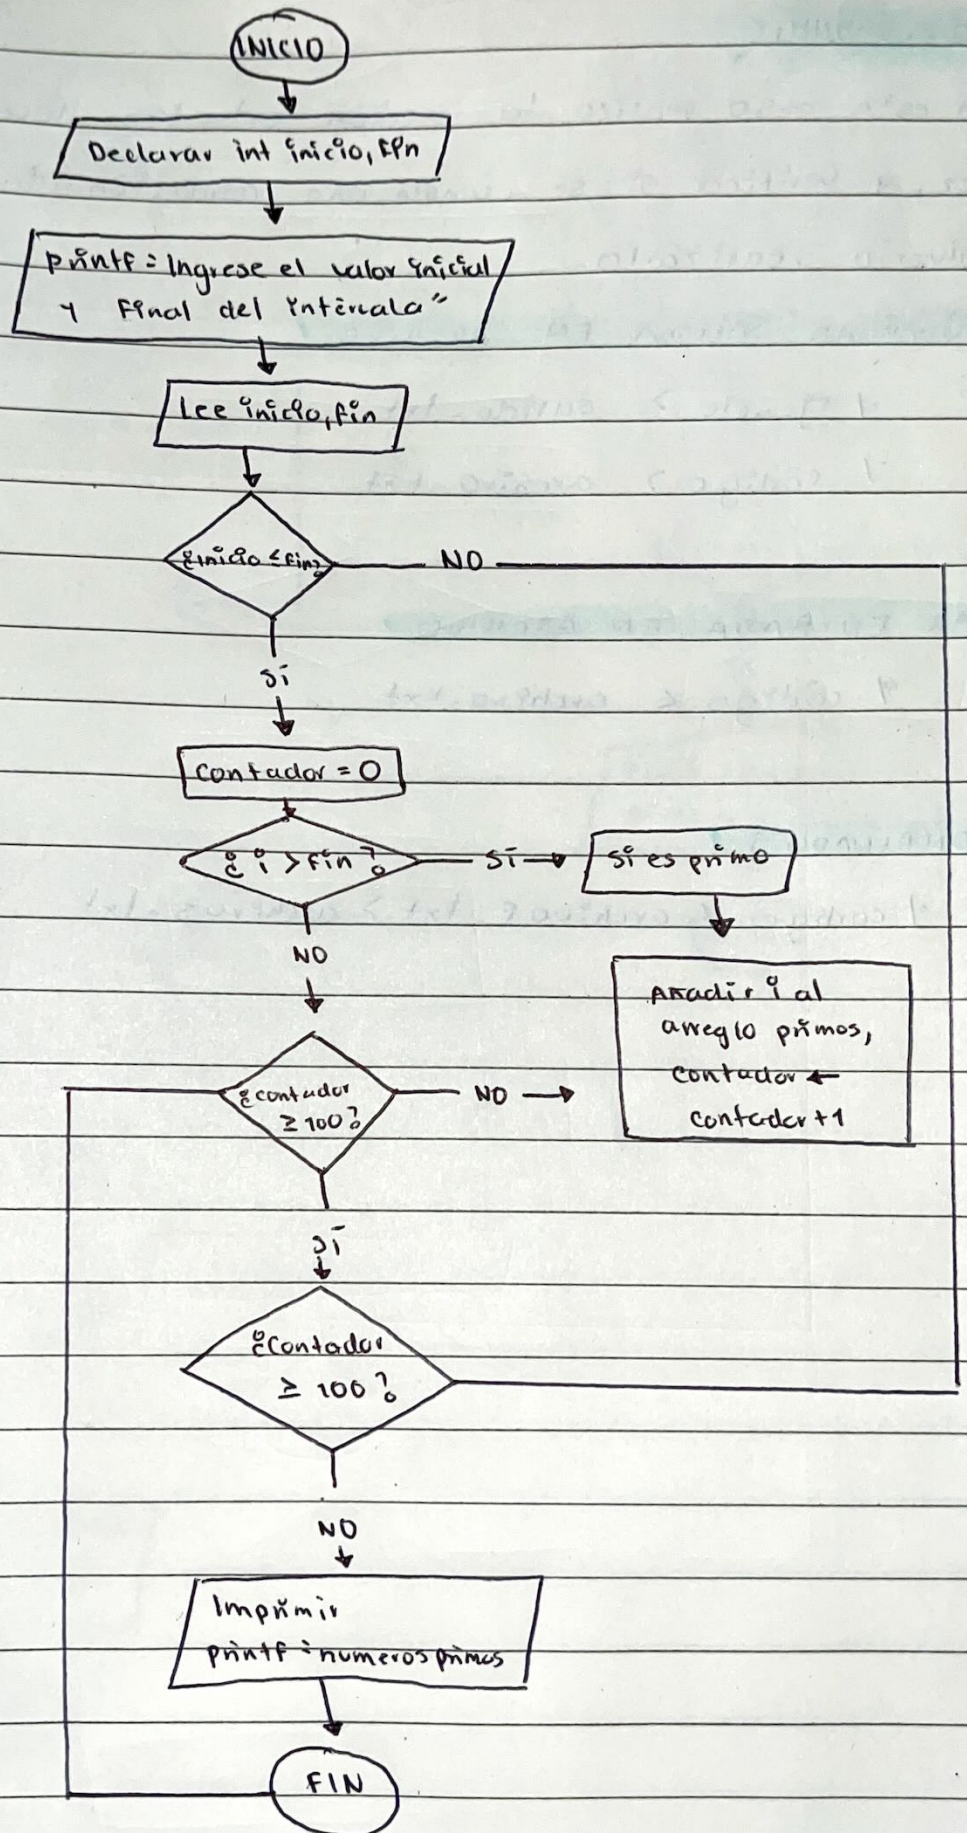 INICIO
Declarar int inicio, fin
printf = Ingrese el valor inicial
y Final del intercala"
Lee inicio, fin
¿inicio ≤ fin?
NO
Sí
contador = 0
¿ i > fin ?
Sí
Si es primo
NO
Añadir i al
arreglo primos,
contador ←
contador + 1
¿contador
≥ 100?
NO
Sí
¿Contador
≥ 100 ?
NO
Imprimir
printf = numeros primos
FIN